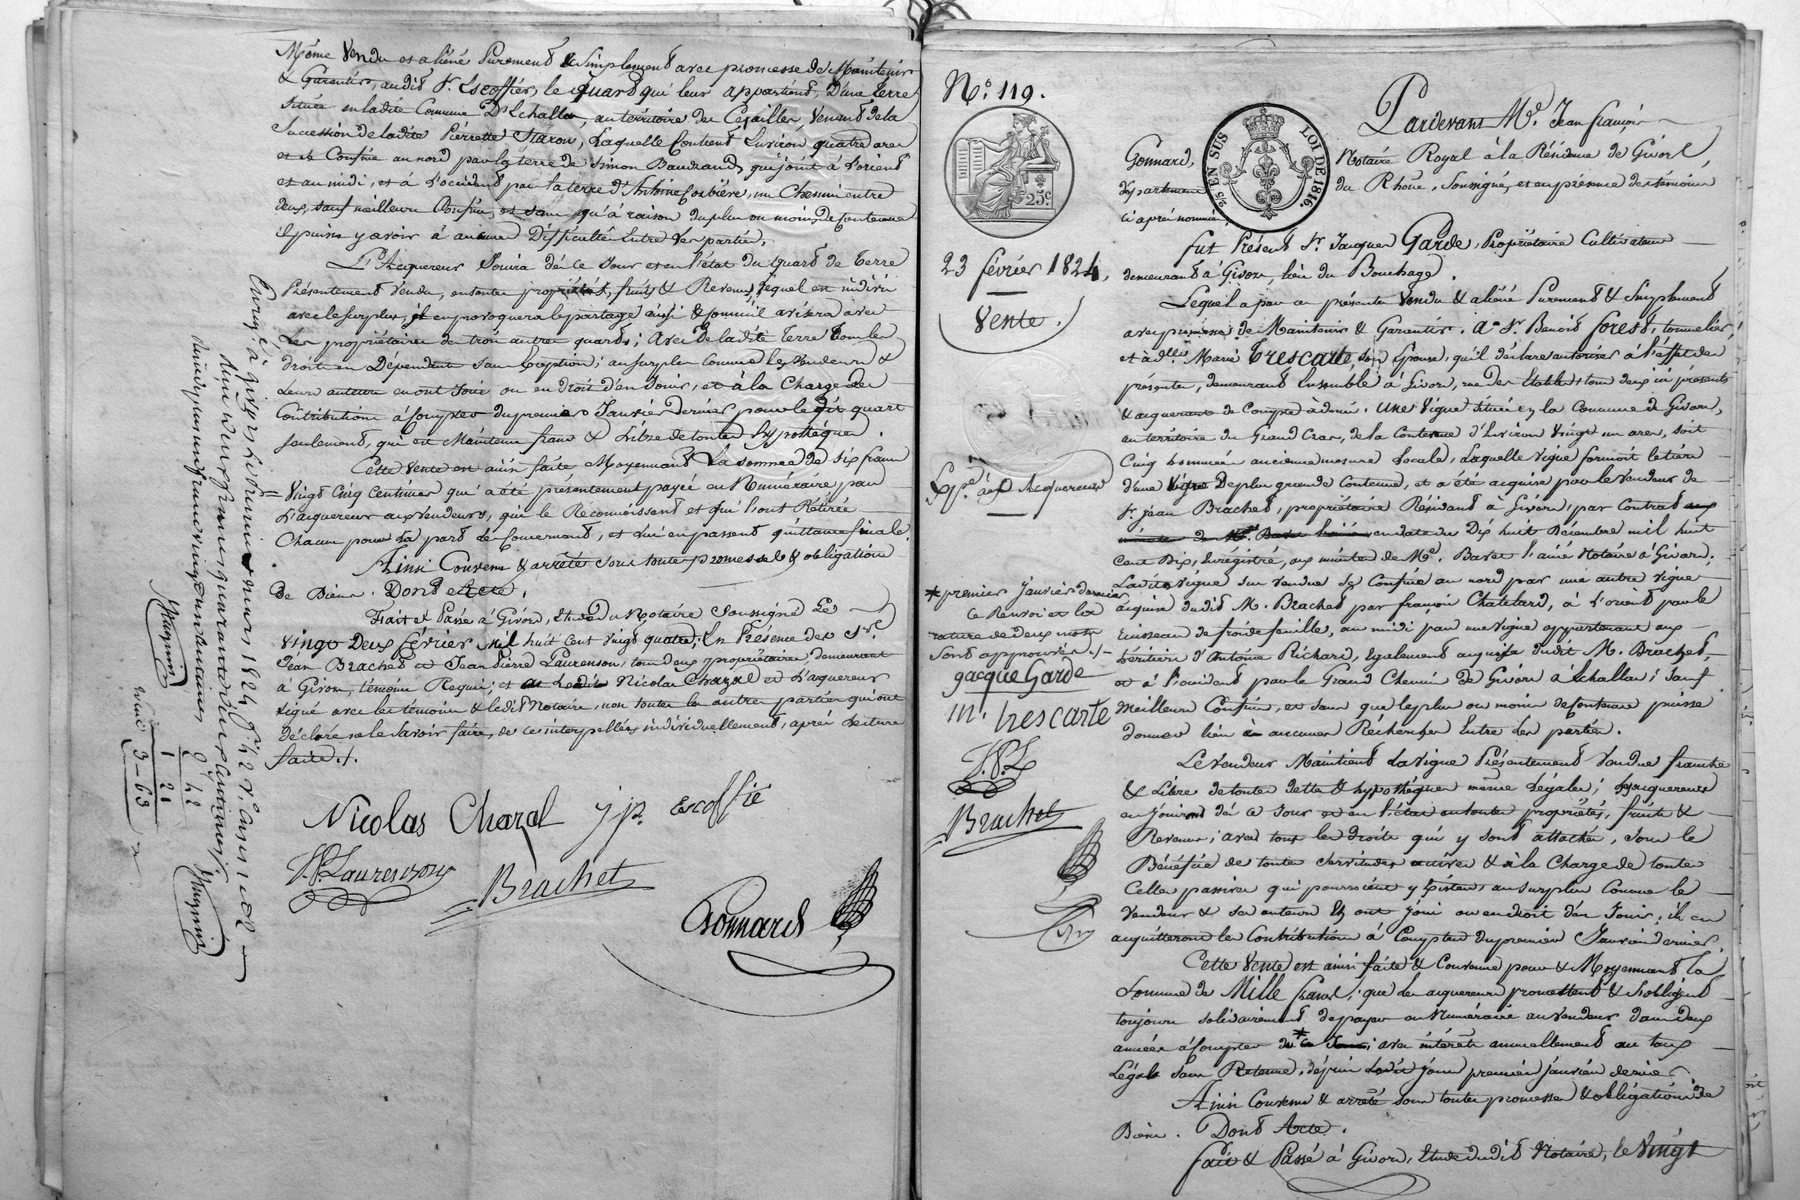 Même vendu et aliéné Purement & Simplement avec promesse de Maintenir
& Garantir, audit Sr. Escoffier, le quart qui leur appartient, D'une terre
située en ladite Commune D'Echallas, au térritoire du Cejaillen, Venant de la
Succession de ladite Pierrette Staron, Laquelle Contient Environ quatre ares
et se Confine au nord par la terre de Simon Baudrand, qui joint à l'orient
et au midi, et à l'occident par la terre d'Antoine Corbière, un Chemin entre
deux, sauf meilleurs Confins, et sans qu'à raison du plus ou moins de contenue
il puisse y avoir à aucune Difficulté Entre les parties.
L'Acquereur Jouira dès ce Jour et en l'état du Quart de terre
Présentement Vendu, en toutes propriétés, fruits & Revenus, lequel est indivis
avec le surplus, il en provoquera le partage ainsi & comme il avisera avec
Les propriétaires de trois autres quarts; Avec De ladite terre tous les
droits en Dépendant Sans Exception; au surplus Comme les Vendeurs &
Leurs auteurs en ont Joui ou eu droit d'en Jouir, et à la Charge des
Contributions à Compter du premier Janvier Dernier pour le dit quart
seulement, qui est Maintenu franc & Libre de toutes hypothèques.
Cette Vente est ainsi faite Moyennant La somme de Six francs
Vingt Cinq Centimes qui a été présentement payée en Numéraire par
L'acquereur aux Vendeurs, qui le Reconnoissent et qui l'ont Rétirée
Chacun pour La part Le Concernant, et lui en passent quittance finale.
Ainsi Convenu & arrêté sous toutes promesses & obligations
De Biens. Dont Acte.
Fait et Passé à Givors, Etude du Notaire Soussigné Le
Vingt Deux février Mil huit Cent Vingt quatre; En Présence des Srs.
Jean Brachet et Jean Pierre Laurenson, tous deux propriétaires, demeurant
à Givors, témoins Requis; et Nicolas Chazal et L'acquereur
signé avec les témoins & ledit Notaire, non toutes les autres parties qui ont
déclaré ne le Savoir faire, de ce interpellées individuellement, après lecture
faite ./.
Nicolas Chazal j p. Escoffié
J.P. Laurenson
Brachet
Gonnard
3-63
N.o 119.
25c
23 février 1824.
Vente.
25 EN SUS
LOI DE 1816.
Pardevant Me. Jean françois
Gonnard, Notaire Royal à la Résidence de Givors,
département du Rhône, Soussigné, et en présence des témoins
ci après nommés,
fut Présent Sr. Jacques Garde, Propriétaire Cultivateur
demeurant à Givors, lieu du Bouchage.
Lequel a par ces présentes Vendu & aliéné Purement & Simplement
avec promesse de Maintenir & Garantir. A Sr. Benoit forest, tonnelier,
et à dlle. Marie Trescarte, son Epouse, qu'il déclare autoriser à l'effet des
présentes, demeurant Ensemble à Givors, rue des Etables, tous deux ici présents
& acquerant de Compte à demi. Une Vigne située en la Commune de Givors,
en territoire du Grand Cras, de la Contenue d'Environ Vingt un ares, soit
Cinq hommées ancienne mesure Locale, Laquelle vigne formoit le tiers
d'une Vigne De plus grande Contenue, et a été acquise par le vendeur de
Sr. Jean Brachet, propriétaire Résidant à Givors, par Contrat
en date du Dix huit Décembre mil huit
Cent Dix, Enregistré, aux minutes de Me. Baret l'ainé Notaire à Givors.
Ladite Vigne sus Vendue se Confine au nord par une autre vigne
acquise dudit M. Brachet par françois Chatelard, à l'orient par le
Ruisseau de froide feuille, au midi par une vigne appartenant aux
héritiers d'Antoine Richard, Egalement acquise dudit M. Brachet,
et à l'occident par le Grand Chemin de Givors à Echallas; Sauf
Meilleurs Confins, et sans que le plus ou moins de Contenue puisse
donner lieu à aucunes Recherches Entre les parties.
Le Vendeur Maintient La Vigne Présentement Vendue franche
& Libre de toutes dettes & hypothèques même Légales; les acquereurs
en jouiront dès ce Jour et en l'état en toutes propriétés, fruits &
Revenus, avec tous les droits qui y sont attachés, sous le
Bénéfice de toutes Servitudes actives & à la Charge de toutes
Celles passives qui pourroient y Exister; au surplus Comme le
Vendeur & ses auteurs En ont Joui ou eu droit d'en Jouir, ils en
acquitteront les Contributions à Compter du premier Janvier dernier.
Cette Vente est ainsi faite & Convenue pour & Moyennant la
Somme de Mille francs, que les acquereurs promettent & s'obligent
toujours solidairement de payer en Numéraire au Vendeur dans deux
années à Compter du * ; avec intérêts annuellement au taux
Légal sans Retenue, depuis Ledit Jour premier Janvier dernier.
Ainsi Convenu & arrêté sous toutes promesses & obligations de
Biens. Dont Acte.
fait & Passé à Givors, Etude dudit Notaire, le Vingt
* premier Janvier dernier
Ce Renvoi et la
rature de Deux mots
sont approuvés ./.
jacque Garde
m. trescarte
J.P.L
Brachet